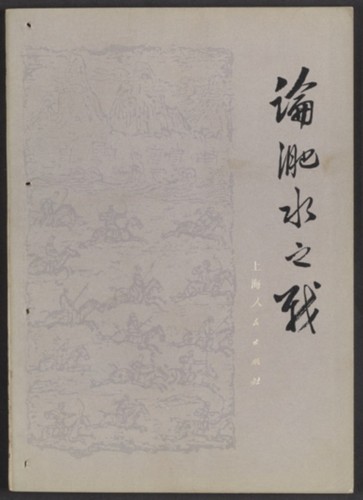 論淝水之戰
上海人民出版社